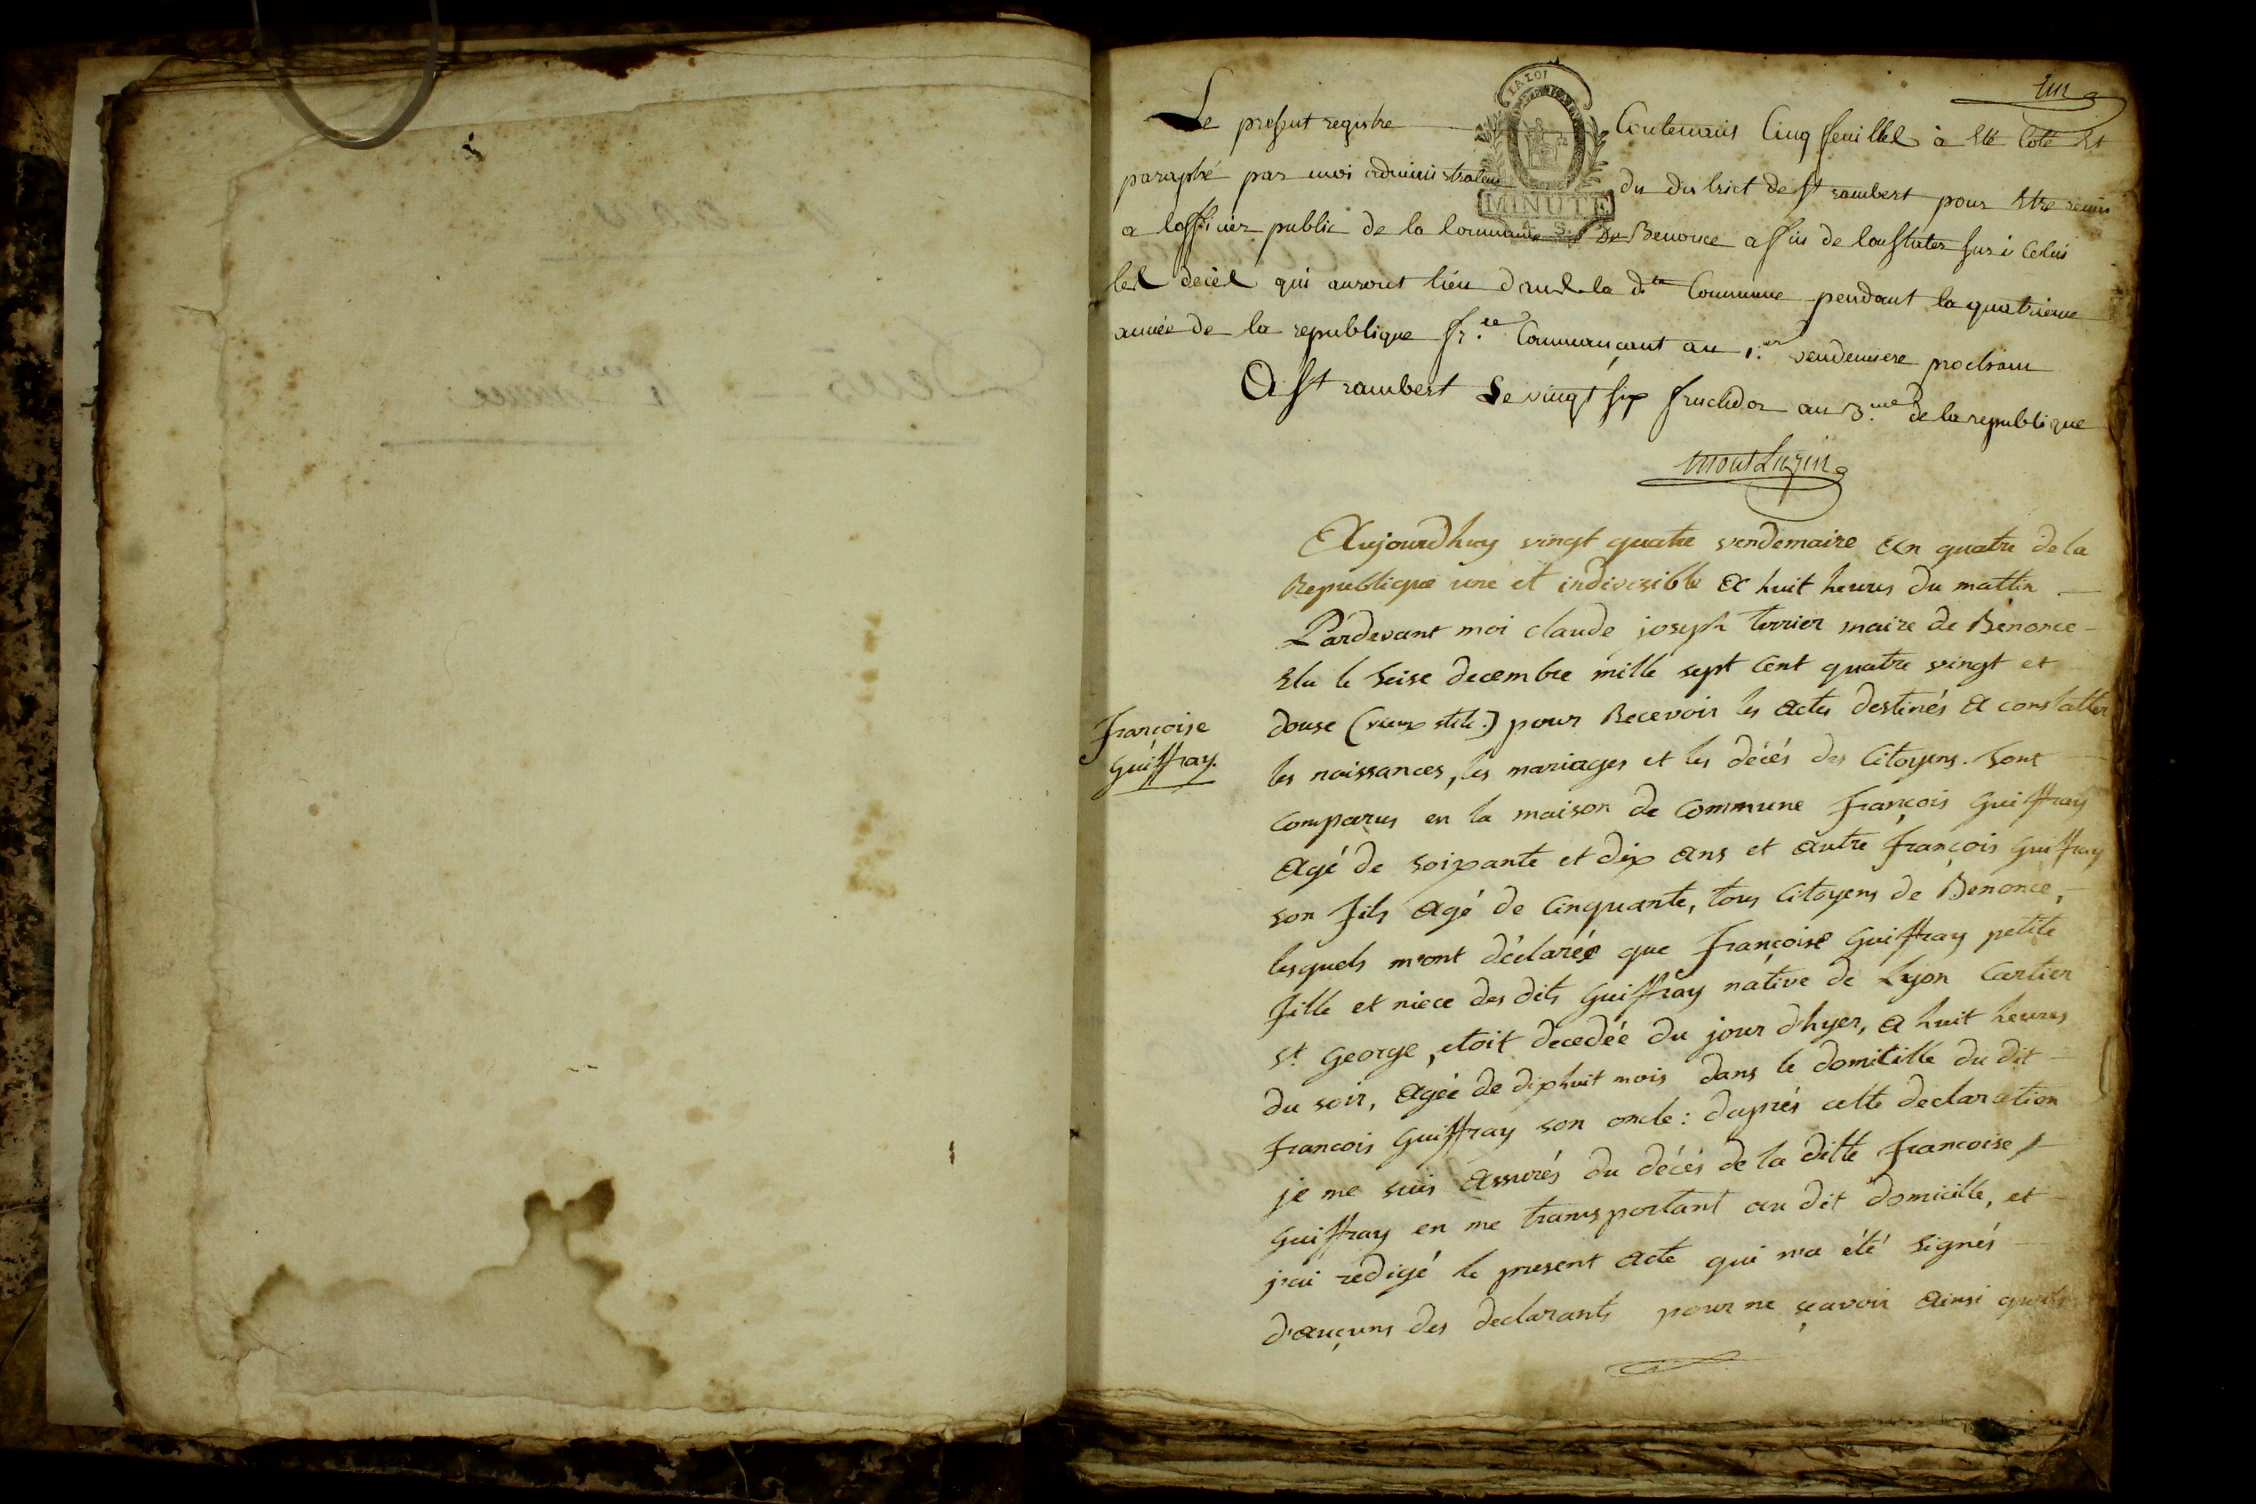 un
Le present registre Contenans Cinq feuillet à Eté Coté Et
paraphé par moi administrateur du district de St rambert pour Etre remis
a lofficier public de la Commune de Benonce affin de Constater sur i Celui
les decès qui auront lieu dans la dte Commune pendant la quatrieme
année de la republique fr.se Commançant au 1.er vendemiere prochain
A St rambert Le vingt six fructidor an 3.me de la republique
MINUTE
montluzin
Aujourdhuy vingt quatre vendemaire An quatre de la
Republique une et indivisible A huit heures du mattin
Pardevant moi claude joseph terrier maire de Benonce
Elu le Seise decembre mille sept Cent quatre vingt et
douse (vieux stile.) pour Recevoir les actes destinés A constatter
les naissances, les mariages et les décés des Citoyens. Sont
Comparus en la maison de Commune françois Guiffray
Agé de soixante et dix Ans et autre françois Guiffray
son fils Agé de Cinquante, tous Citoyens de Benonce,
lesquels m'ont déclarée que françoise Guiffray petite
fille et niece des dits Guiffray native de Lyon Cartier
St George, etoit decedée du jour d'hyer, a huit heures
du soir, Agée de dixhuit mois dans le domicille du dit
francois Guiffray son oncle: daprés cette declaration
je me suis Assurés du décés de la ditte francoise
Guiffray en me transportant au dit domicille, et
j'ai redigé le present Acte qui n'a été signés
d'auçuns des declarants pour ne sçavoir Ainsi quils
françoise
Guiffray.